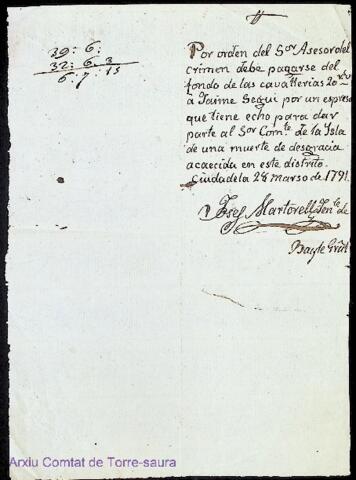 39: 6:
32: 6. 3
6: 7. 15
Por orden del Sor Asesor del
crimen debe pagarse del
fondo de las cavallerias 20
a Jaime Segui por un espreso
que tiene echo para dar
parte al Sor Comte de la Isla
de una muerte de desgracia
acaecida en este distrito.
Ciudadela 28 marso de 1791.
Josef Martorell Tente de
Bayle
Arxiu Comtat de Torre-saura